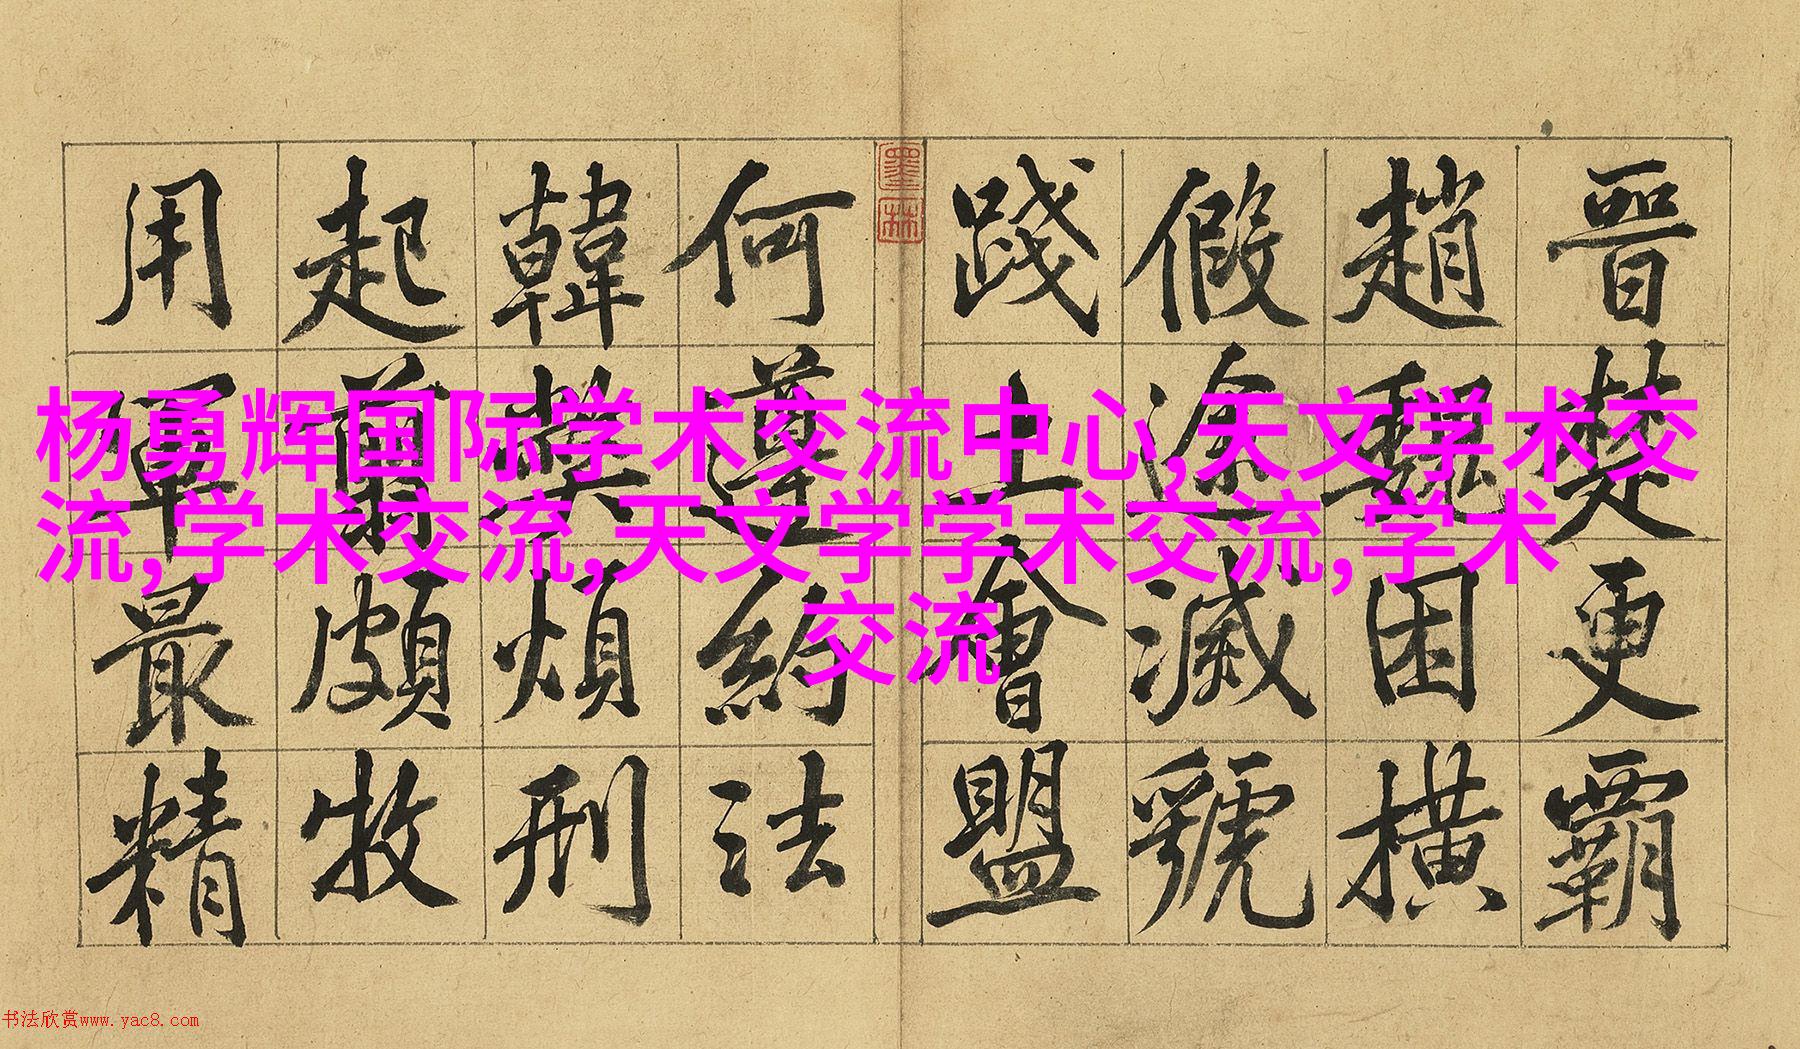 杨勇辉国际学术交流中心,天文学术交
流,学术交流,天文学学术交流,学术
交流
晉楚更霸
趙魏困橫
假途滅虢
踐土會盟
墨林
何遵約法
韓弊煩刑
起翦頗牧
用軍最精
书法欣赏www.yac8.com